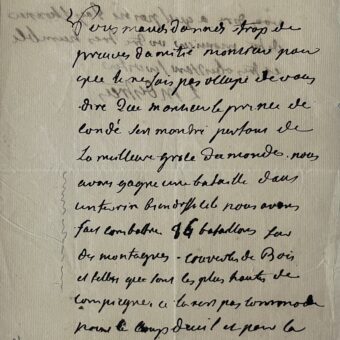 Vous maves donnes trop de
preuves damitie monsieur pour
que je ne sois pas occupé de vous
dire que monsieur le prince de
condé sest montré partout de
la meilleure grace du monde. nous
avons gagne une bataille dans
un terrin bien difficile nous avons
fait combattre 86 bataillons sur
des montagnes couvertes de Bois
et telles que sont les plus hautes de
compiegne ce la nest pas commode
pour le coup deuil et pour la